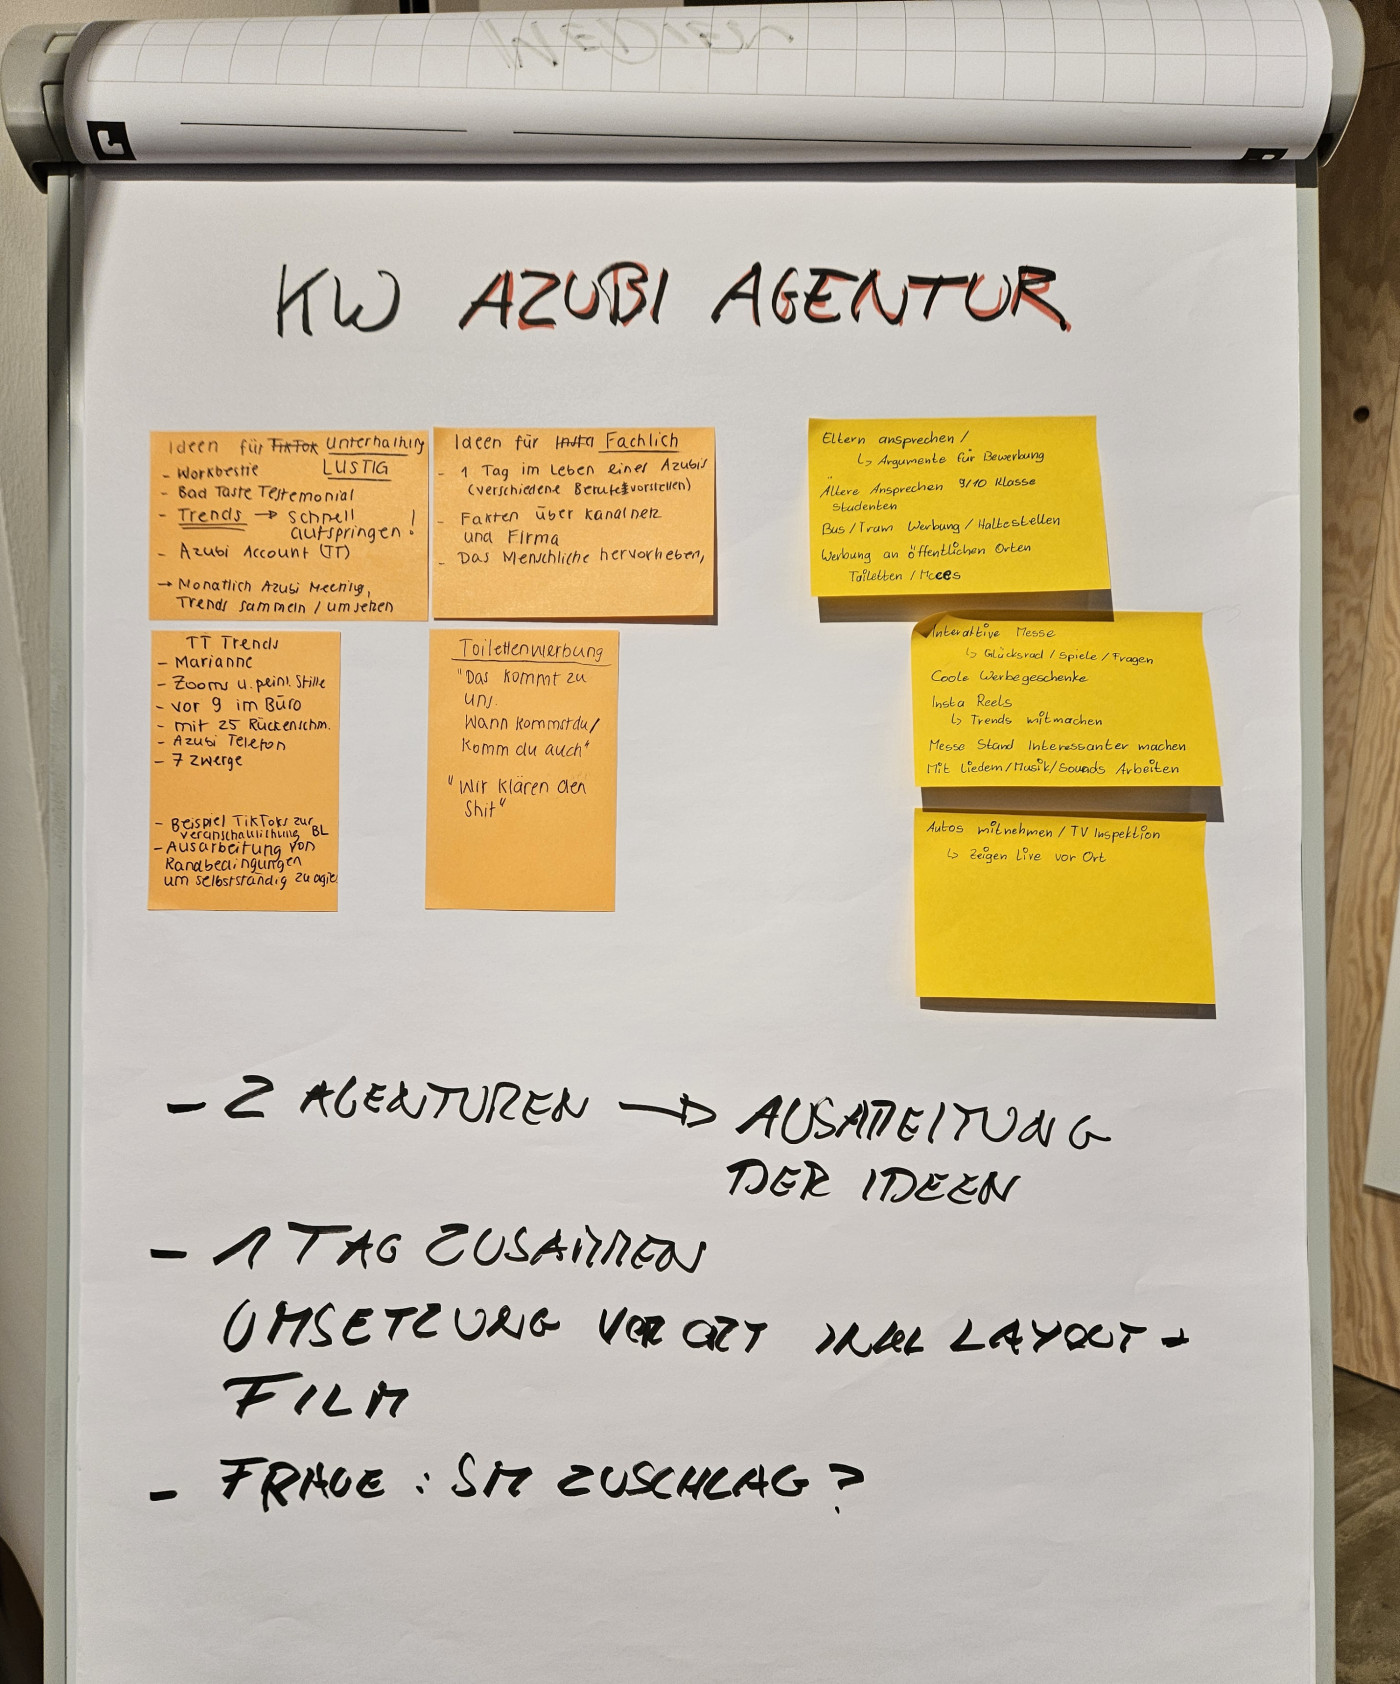 KW AZUBI AGENTUR
Ideen für TikTok Unterhaltung
LUSTIG
- Workbestie
- Bad Taste Testemonial
- Trends → schnell
aufspringen!
- Azubi Account (TT)
→ Monatlich Azubi Meeting,
Trends sammeln / umsetzen
Ideen für Insta Fachlich
- 1 Tag im Leben eines Azubis
(verschiedene Berufe vorstellen)
- Fakten über Kanalnetz
und Firma
- Das Menschliche hervorheben,
TT Trends
- Marianne
- Zooms u. peinl. Stille
- vor 9 im Büro
- mit 25 Rückenschm.
- Azubi Telefon
- 7 Zwerge
- Beispiel TikToks zur
veranschaulichung BL
- Ausarbeitung von
Randbedingungen
um selbstständig zu agie
Toilettenwerbung
"Das kommt zu
uns.
Wann kommst du/
Komm du auch"
"Wir klären den
Shit"
Eltern ansprechen /
↳ Argumente für Bewerbung
Ältere Ansprechen 9/10 Klasse
Studenten
Bus / Tram Werbung / Haltestellen
Werbung an öffentlichen Orten
Toiletten / Mcces
Interaktive Messe
↳ Glücksrad / Spiele / Fragen
Coole Werbegeschenke
Insta Reels
↳ Trends mitmachen
Messe Stand Interessanter machen
Mit Liedern/Musik/Sounds Arbeiten
Autos mitnehmen / TV Inspektion
↳ Zeigen Live vor Ort
- 2 AGENTUREN → AUSARBEITUNG
DER IDEEN
- 1 TAG ZUSAMMEN
UMSETZUNG VOR ORT INKL LAYOUT +
FILM
- FRAGE : SM ZUSCHLAG ?